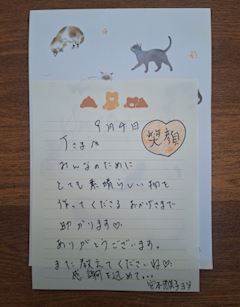 9月4日
笑顔
Tさま
みんなのために
とても素晴らしい物を
作ってくださる おかげさまで
助かります♡
ありがとうございます。
また教えてくださいね♡
感謝を込めて…